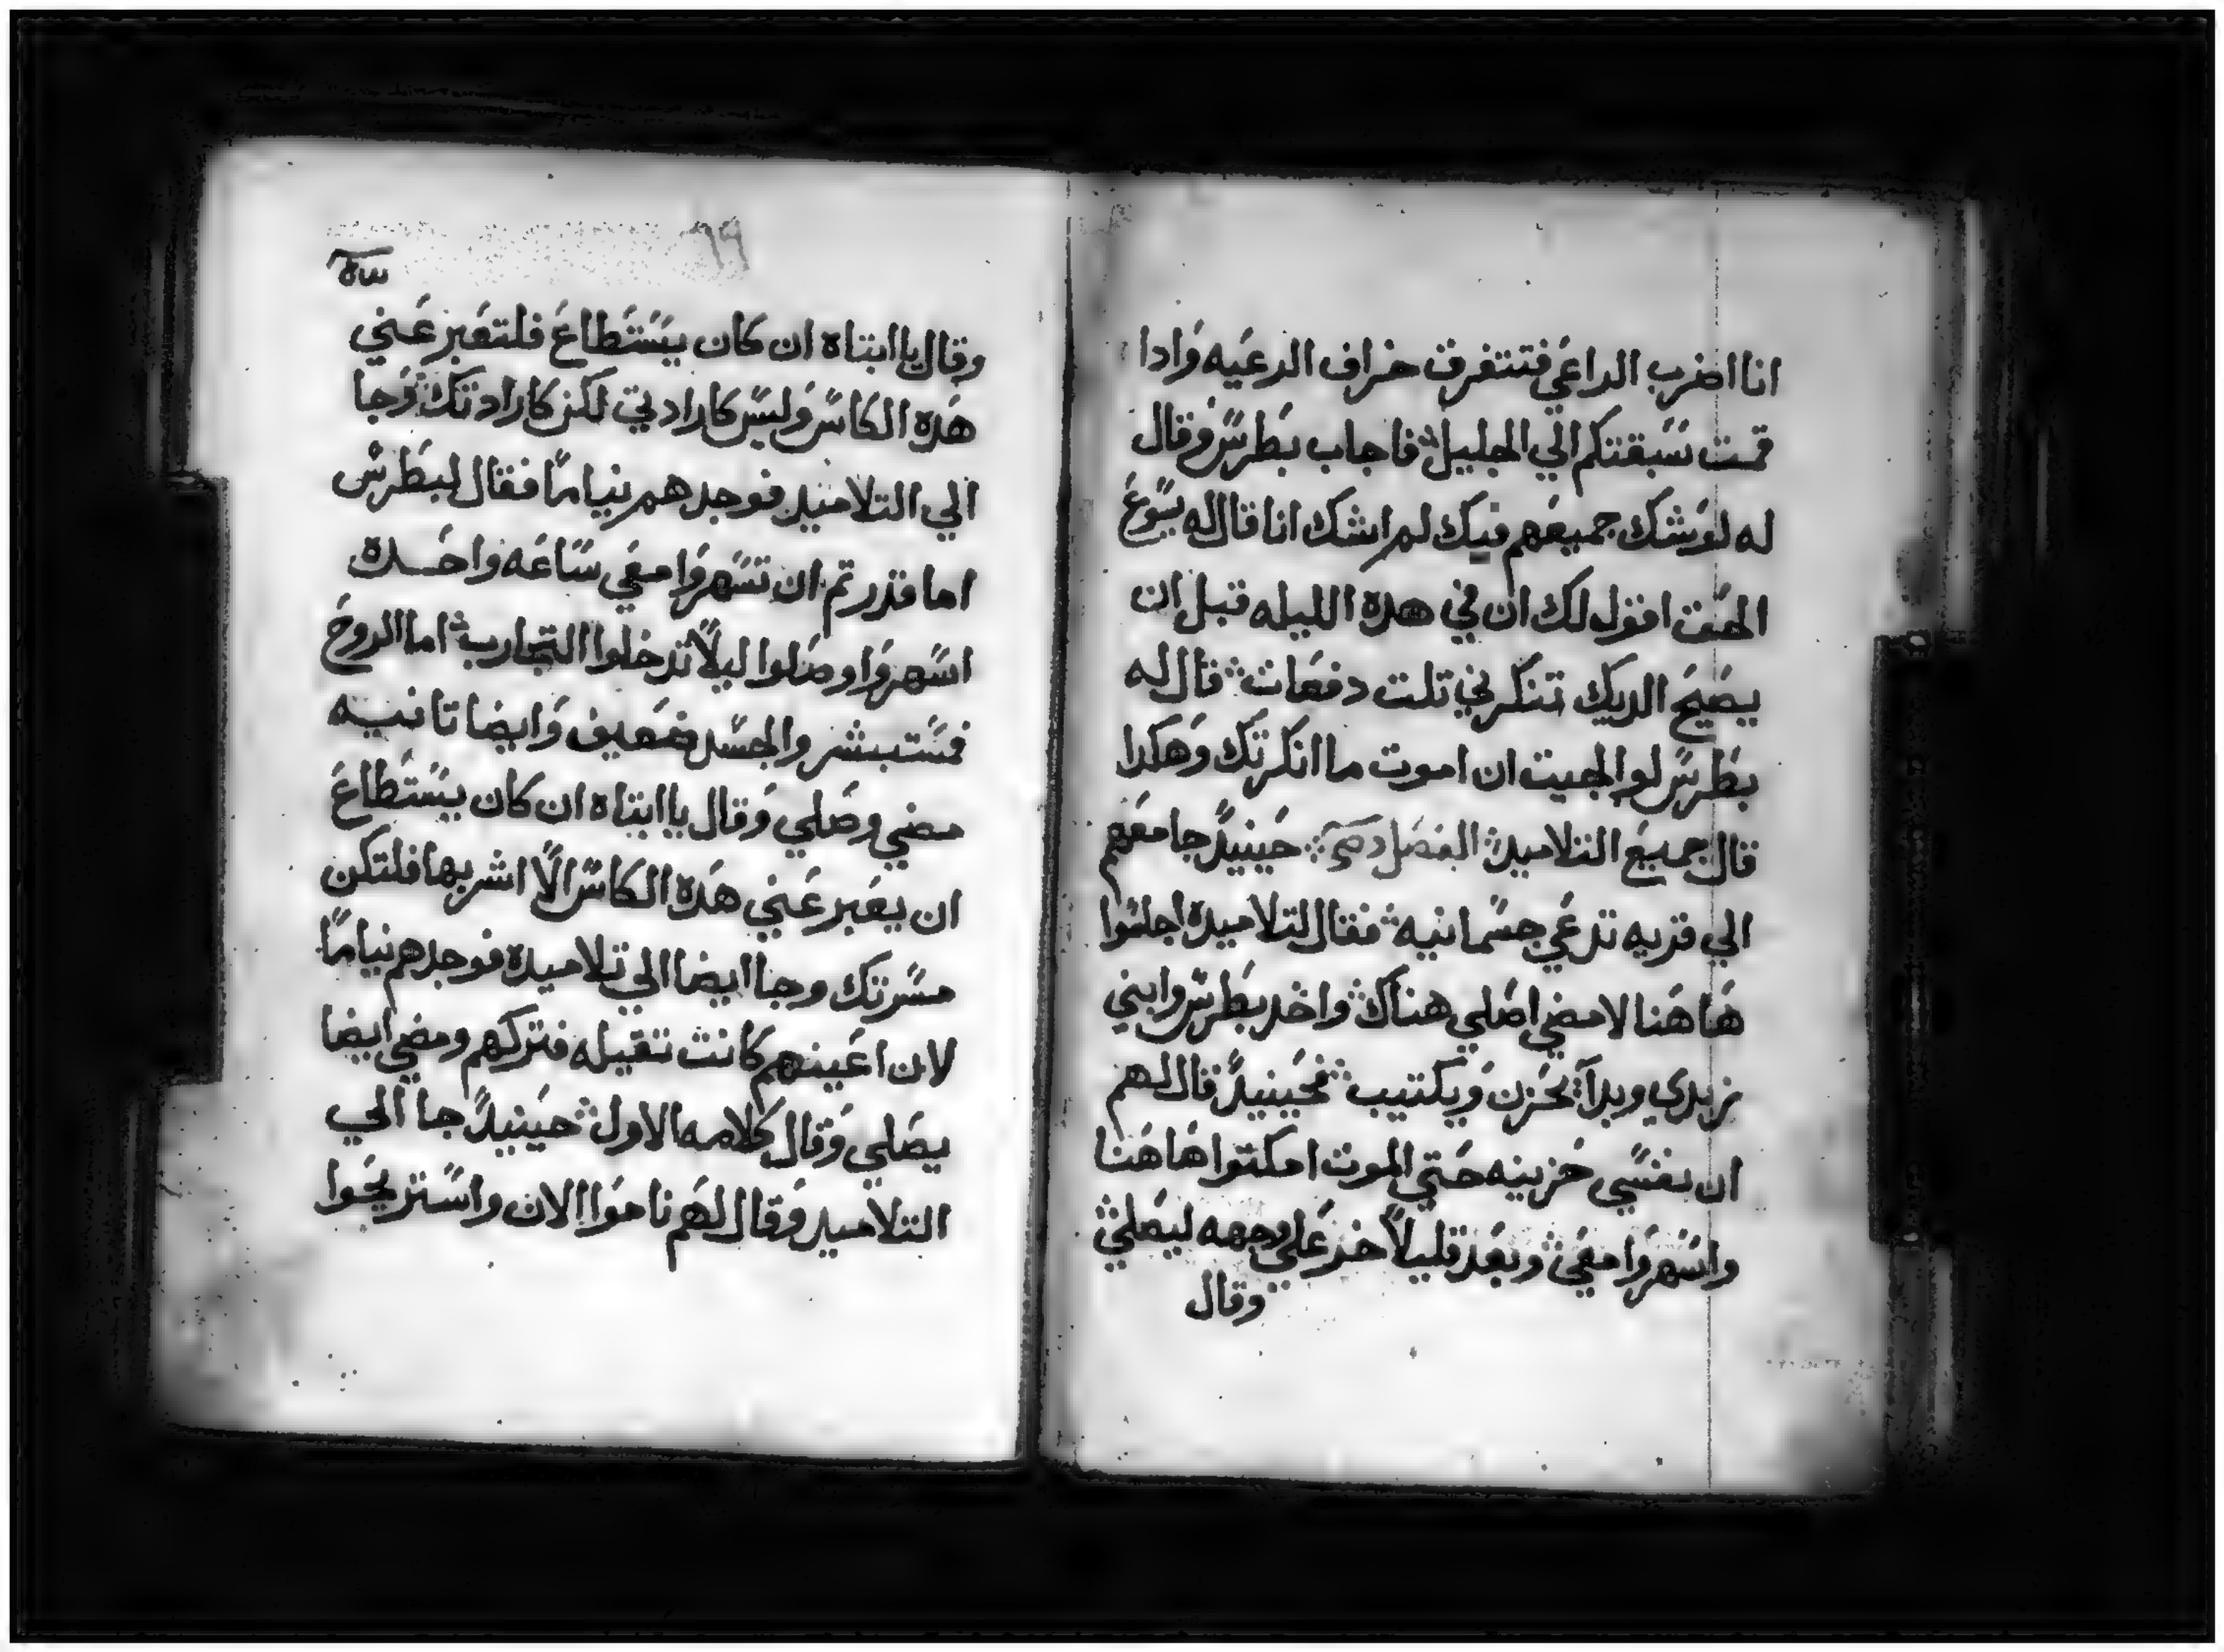 انا اضرب الراعي فتتفرق خراف الرعيه وادا
قمت سبقتكم الي الجليل فاجاب بطرس وقال
له لو شك جميعهم فيك لم اشك انا قال له يسوع
الحق اقول لك ان في هده الليله قبل ان
يصيح الديك تنكرني تلت دفعات قال له
بطرس لو الجيت ان اموت ما انكرتك وهكدا
قال جميع التلاميد الفصل حينيدً جا معهم
الي قريه تدعي جسمانيه فقال لتلاميده اجلسوا
هاهنا لامضي اصلي هناك واخد بطرس وابني
زبدي وبدا يحزن ويكتيب فحينيدً قال لهم
ان نفسي حزينه حتي الموت امكتوا هاهنا
واسهروا معي وبعد قليلاً خر علي وجهه ليصلي
وقال
٦٩
وقال يا ابتاه ان كان يستطاع فلتعبر عني
هده الكاس وليس كارادتي لكن كارادتك وجا
الي التلاميد فوجدهم نياماً فقال لبطرس
اما قدرتم ان تسهروا معي ساعه واحده
اسهروا وصلوا ليلاً تدخلوا التجارب اما الروح
فمستبشر والجسد ضعيف وايضا تانيه
مضي وصلي وقال يا ابتاه ان كان يستطاع
ان يعبر عني هده الكاس الا اشربها فلتكن
مسرتك وجا ايضا الي تلاميده فوجدهم نياماً
لان اعينهم كانت تقيله فتركهم ومضي ايضا
يصلي وقال كلامه الاول حينيدً جا الي
التلاميد وقال لهم ناموا الان واستريحوا